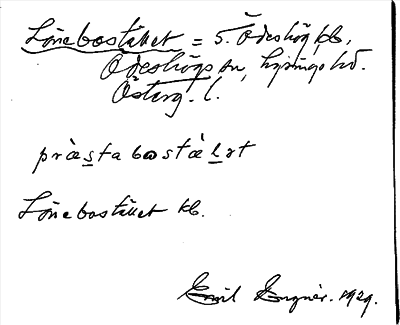 Lönebostället = S. Ödeshög kb,
Ödeshögs sn, Lysings hd.
Österg. l.
præstabostælət
Lönebostället kb.
Emil Engnér. 1929.